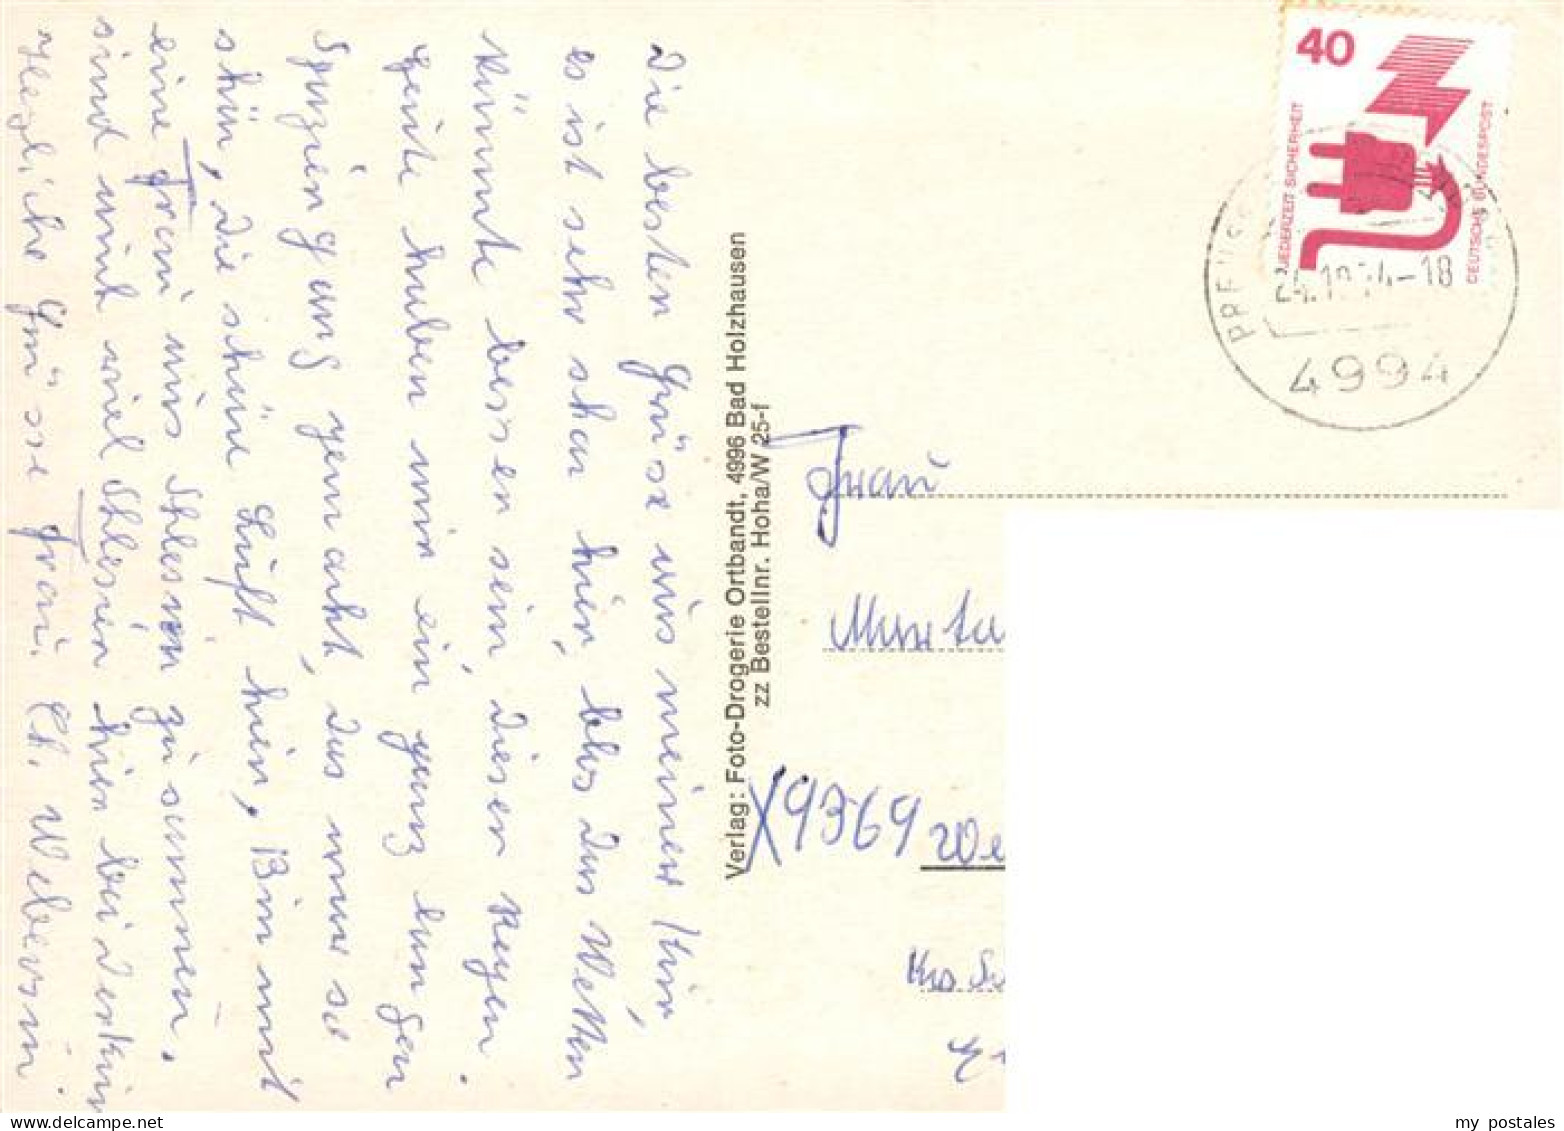 Die besten Grüse aus meiner Kur,
es ist sehr schön hier, blos das Wetter
könnte besser sein, dieser Regen.
Heute haben wir ein ganz langen
Spaziengang gemacht, das war so
schön, die schöne Luft hier, Bin mit
eine Frau aus Schlesien zusammen.
sind und viel Schlesier hier bei der Kur
Herzliche Grüsse Frau. Ch. Weberin.
Verlag: Foto-Drogerie Ortbandt, 4996 Bad Holzhausen
zz Bestellnr. Hoha/W 25-f
40
JEDERZEIT SICHERHEIT
DEUTSCHE BUNDESPOST
24.10.74-18
4994
Frau
Marta
X9369 We
my postales